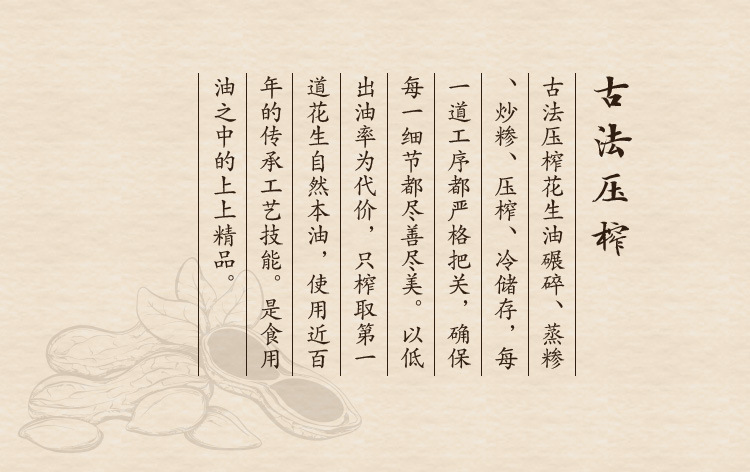 古法压榨
古法压榨花生油碾碎、蒸糁
、炒糁、压榨、冷储存，每
一道工序都严格把关，确保
每一细节都尽善尽美。以低
出油率为代价，只榨取第一
道花生自然本油，使用近百
年的传承工艺技能。是食用
油之中的上上精品。